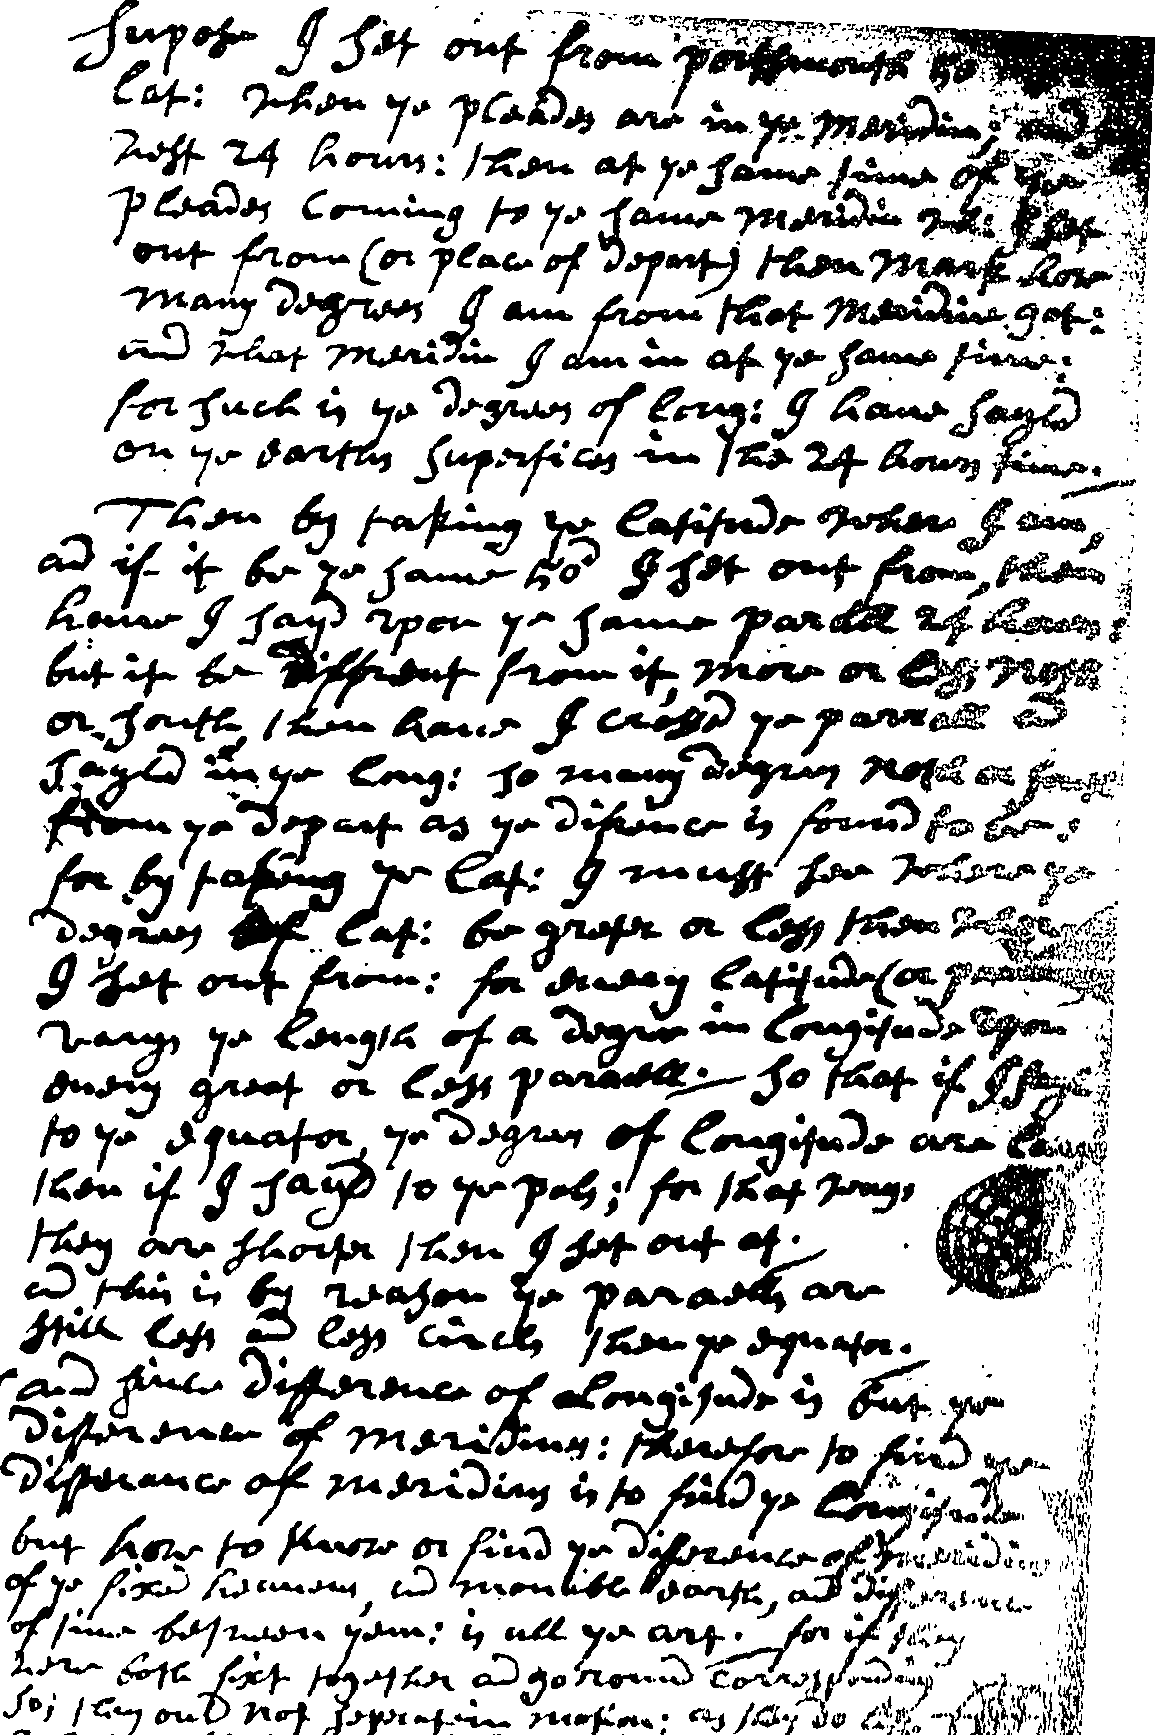 Supose I set out from portsmouth
lat: when ye pleades are in ye meridin;
next 24 hours: then at ye same time of ye
pleades Coming to ye same meridin I set
out from (or place of depart) then mark how
many degrees I am from that meridine
and what meridin I am in at ye same time:
for such is ye degrees of long: I have sayld
on ye earths superfices in the 24 hours time.
Then by taking ye latitude where I am,
ad if it be ye same I set out from, then
have I sayd upon ye same parall 24 hours:
but if it be diffrent from it, more or less north
or south, then have I crossd ye parrall ad
sayld in ye long: so many degres north or
from ye depart as ye difrence is found to be:
for by taking ye lat: I must see where ye
degrees of lat: be greter or less then
I set out from: for every latitude (or
varys ye length of a degre in longitude upon
every great or less paraell. so that if I sayl
to ye equator, ye degres of longitude are
then if I sayd to ye pols; for that ways
they are shorter then I set out at.
ad this is by reason ye paraells are
still less ad less circls then ye equator.
and since difference of longitude is but ye
difference of meridins: therefore to find ye
differance of meridins is to find ye longitude
but how to know or find ye difference of meridins
of ye fixed heavens, ad movible earth, ad difference
of time between yem: is all ye art. for if they
were both fixt together ad go round corresponding
so; they had not seperat in motion: as they do